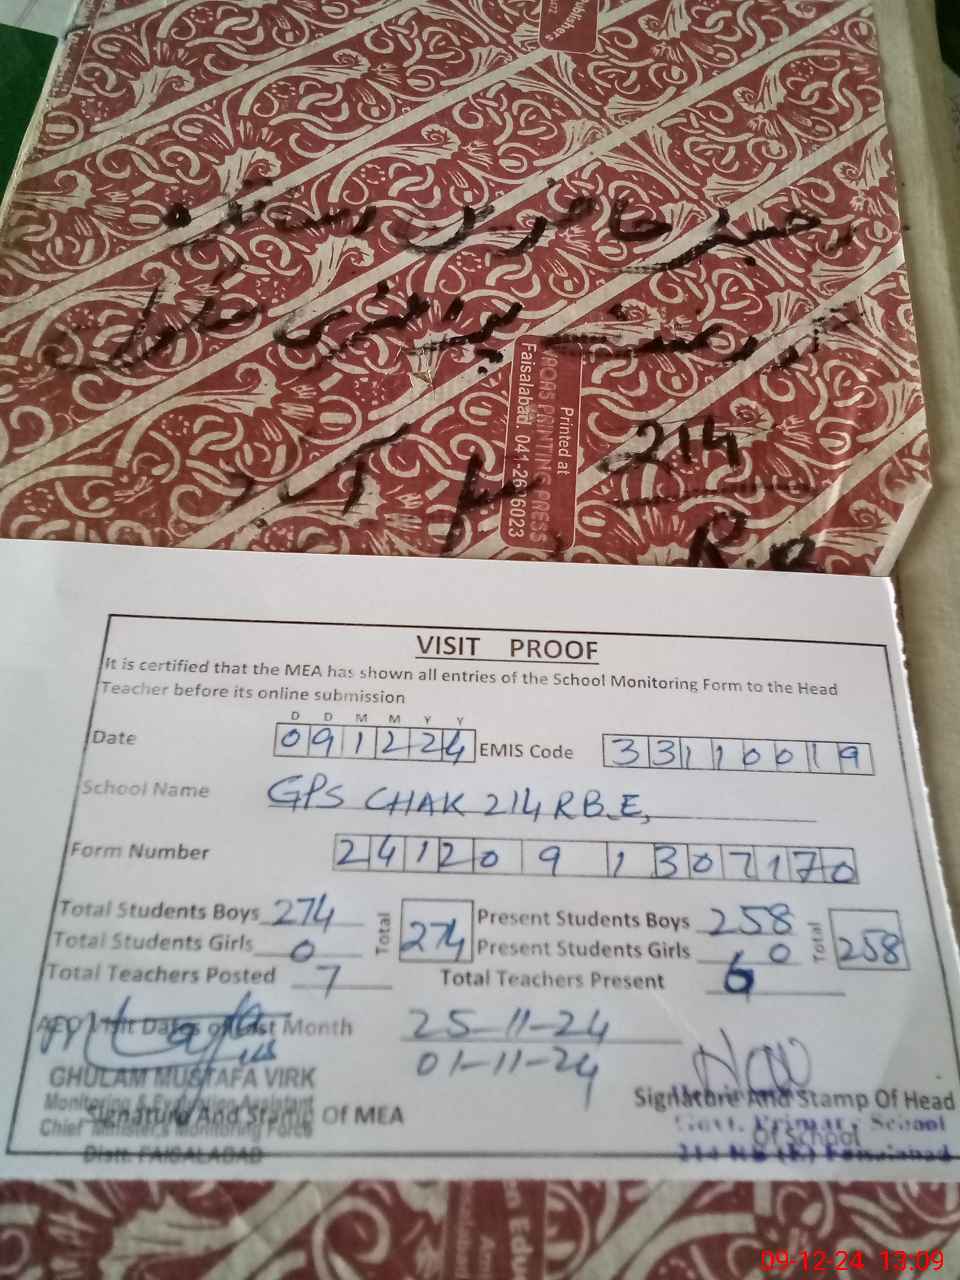 Publishers
رجسٹر حاضری
گورنمنٹ پرائمری سکول
Printed at
PRINTING PRESS
Faisalabad. 041-2626023
214
R.B
VISIT PROOF
It is certified that the MEA has shown all entries of the School Monitoring Form to the Head
Teacher before its online submission
D D M M Y Y
Date 091224 EMIS Code 33110019
School Name GPS CHAK 214 RB.E,
Form Number 2412091307170
Total Students Boys 274 Total 274 Present Students Boys 258 Total 258
Total Students Girls 0 Present Students Girls 0
Total Teachers Posted 7 Total Teachers Present 6
AEO Visit Dates of Last Month 25-11-24
01-11-24
GHULAM MUSTAFA VIRK
Monitoring & Evaluation Assistant
Signature And Stamp Of MEA
Chief Minister's Monitoring Force
Distt. FAISALABAD
Signature And Stamp Of Head
Of School
Govt. Primary School
214 RB (E) Faisalabad
09-12-24 13:09